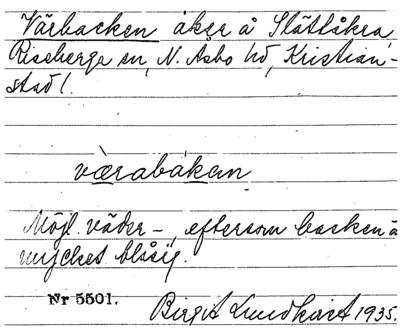 Värbacken åker å Slättåkra
Riseberga sn, N. Åsbo hd, Kristian-
stad l.
værabakan
Möjl. väder-, eftersom backen ä
mycket blåsig.
Nr 5501.
Birgit Lundkvist 1935.